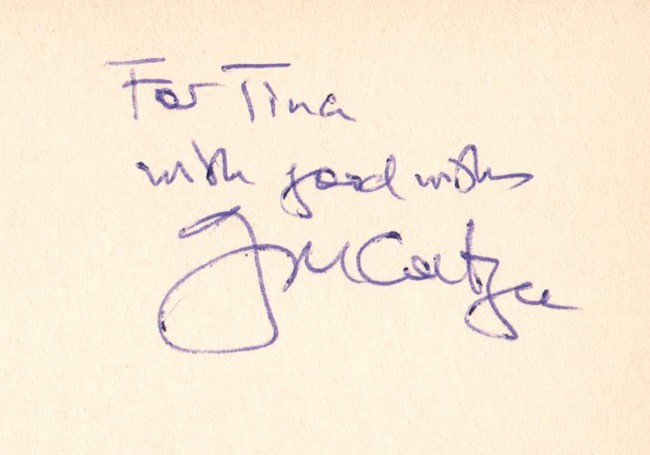 For Tina
with good wishes
J M Coetzee